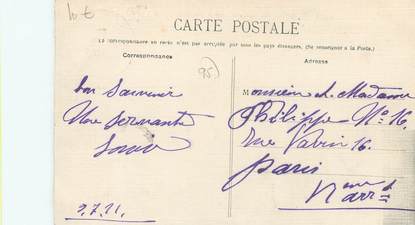 CARTE POSTALE
La correspondance au recto n'est pas acceptée par tous les pays étrangers. (Se renseigner à la Poste.)
Correspondance
Adresse
bon Souvenir
Servante
Monsieur et Madame
Philippe No 16
rue Vavin 16
Paris